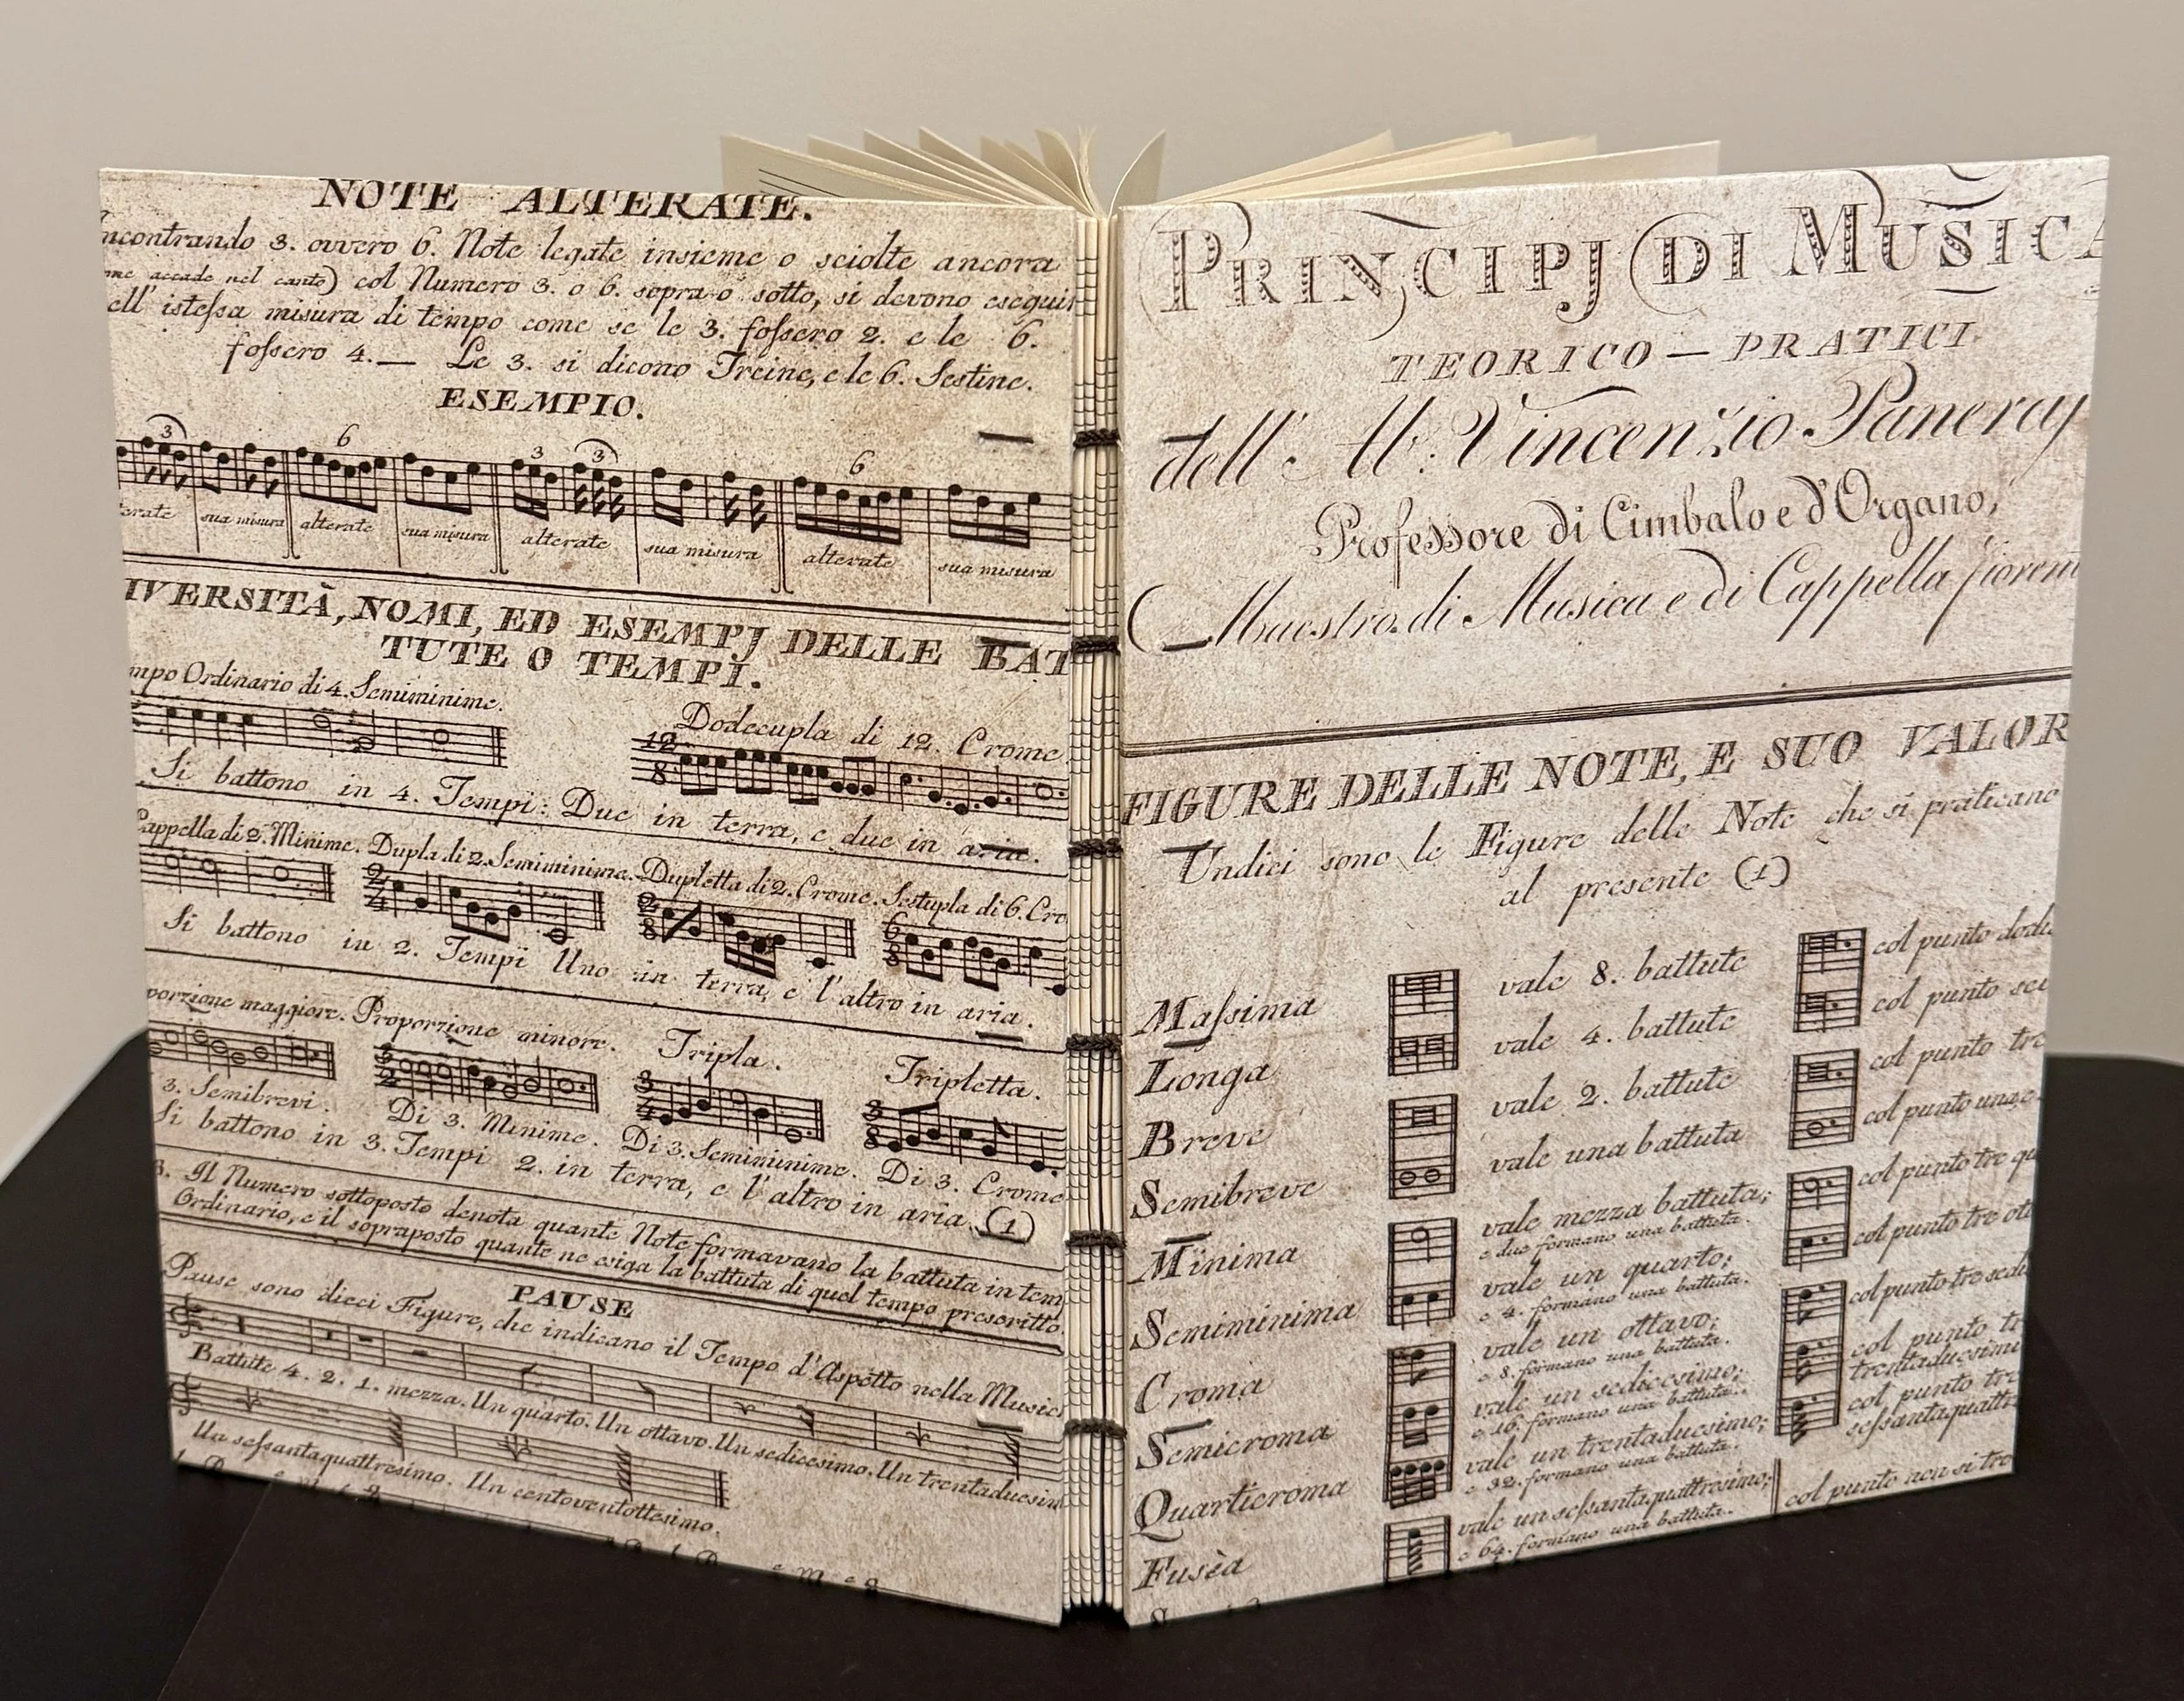 NOTE ALTERATE.
ncontrando 3. ovvero 6. Note legate insieme o sciolte ancora
me accade nel canto) col Numero 3. o 6. sopra o sotto, si devono eseguir
ell' isteſsa misura di tempo come se le 3. foſsero 2. e le 6.
foſsero 4.— Le 3. si dicono Treine, e le 6. Sestine.
ESEMPIO.
3 6 3 3 6
terate sua misura alterate sua misura alterate sua misura alterate sua misura
IVERSITÀ, NOMI, ED ESEMPJ DELLE BAT
TUTE O TEMPI.
mpo Ordinario di 4. Semiminime.
Dodecupla di 12. Crome
12
8
Si battono in 4. Tempi: Due in terra, e due in aria.
Cappella di 2. Minime. Dupla di 2. Semiminime. Dupletta di 2. Crome. Sestupla di 6. Cro
2 2 6
4 8 8
Si battono in 2. Tempi Uno in terra, e l'altro in aria.
porzione maggiore. Proporzione minore. Tripla. Tripletta.
3 3 3
2 4 8
3. Semibrevi. Di 3. Minime. Di 3. Semiminime. Di 3. Crome
Si battono in 3. Tempi 2. in terra, e l'altro in aria (1)
B. Il Numero sottoposto denota quante Note formavano la battuta in tem
Ordinario, e il sopraposto quante ne esiga la battuta di quel tempo prescritto.
PAUSE
Pause sono dieci Figure, che indicano il Tempo d'Aspetto nella Music
Battute 4. 2. 1. mezza. Un quarto. Un ottavo. Un sedicesimo. Un trentaducsim
Un seſsantaquattresimo. Un centoventottesimo.
PRINCIPJ DI MUSICA
TEORICO — PRATICI
dell' Ab: Vincenzio Paneraj
Professore di Cimbalo e d'Organo,
Maestro di Musica e di Cappella fioren
FIGURE DELLE NOTE, E SUO VALOR
Undici sono le Figure delle Note che si praticano
al presente (1)
Maſsima vale 8. battute col punto dodi
Longa vale 4. battute col punto sei
Breve vale 2. battute col punto tre
Semibreve vale una battuta col punto una, e
Minima vale mezza battuta; col punto tre qu
e due formano una battuta.
Semiminima vale un quarto; col punto tre ott
e 4. formano una battuta.
Croma vale un ottavo; col punto tre sedi
e 8. formano una battuta.
Semicroma vale un sedicesimo; col punto tr
e 16. formano una battuta. trentaduesimi
Quarticroma vale un trentaduesimo; col punto tre
e 32. formano una battuta. seſsantaquattr
Fusèa vale un seſsantaquattresimo; col punto non si tro
e 64. formano una battuta.